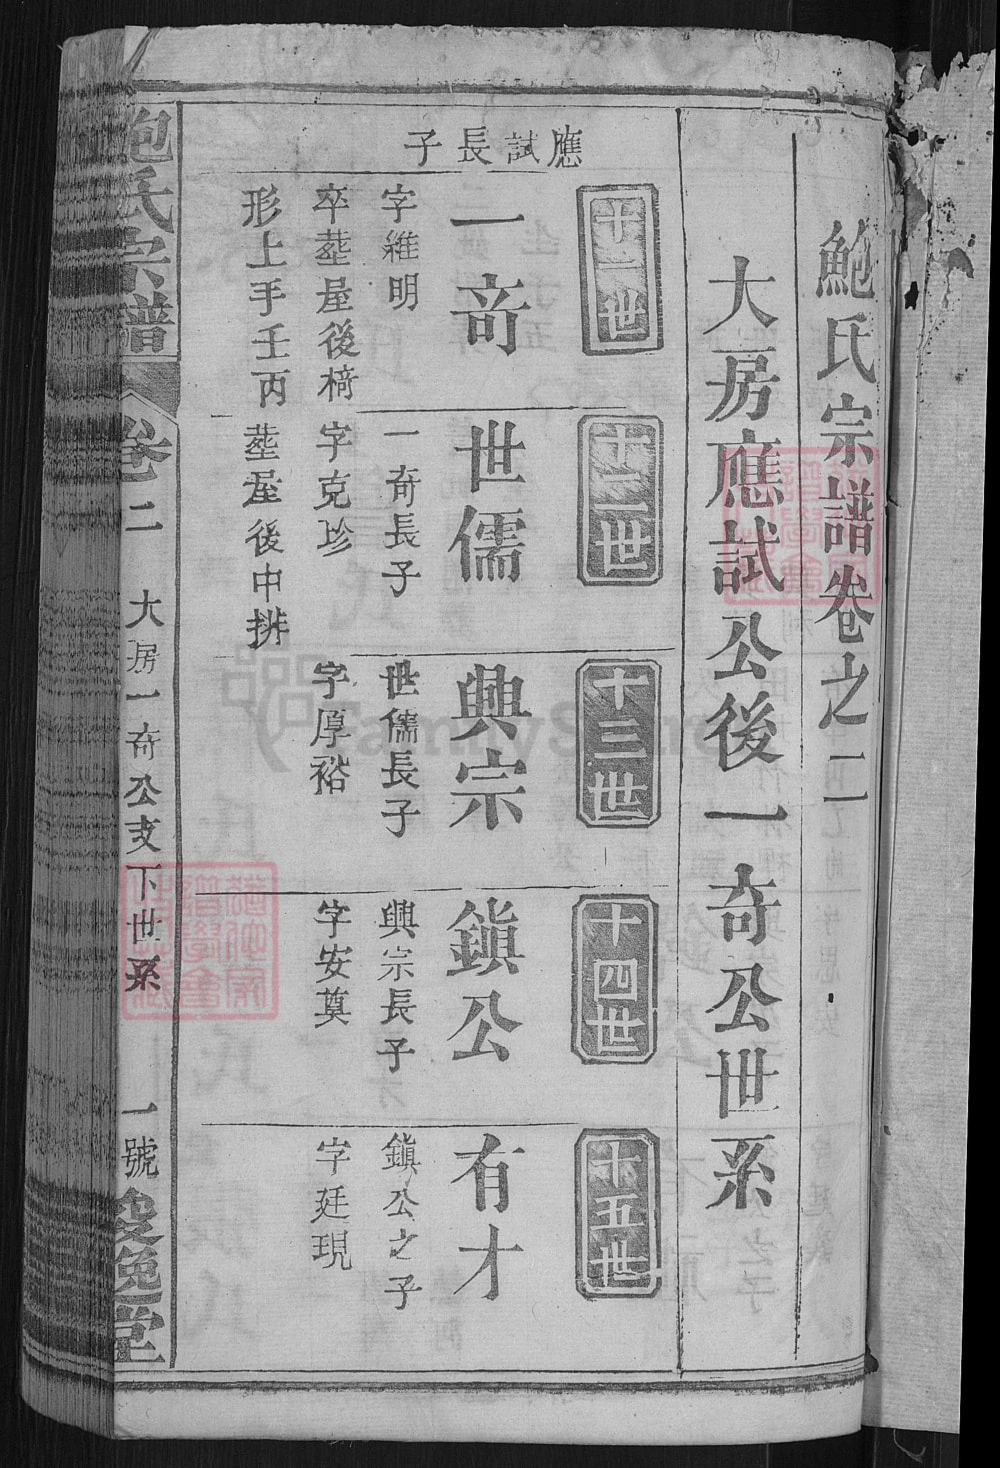 鮑氏宗譜卷之二
大房應試公後一奇公世系
應試長子
十一世
一奇
字維明
卒塟屋後椅
形上手壬丙
十二世
世儒
一奇長子
字克珍
塟屋後中排
十三世
興宗
世儒長子
字厚裕
十四世
鎮公
興宗長子
字安奠
十五世
有才
鎮公之子
字廷現
鮑氏宗譜
卷二
大房一奇公支下世系
一號
逸堂
FamilySearch